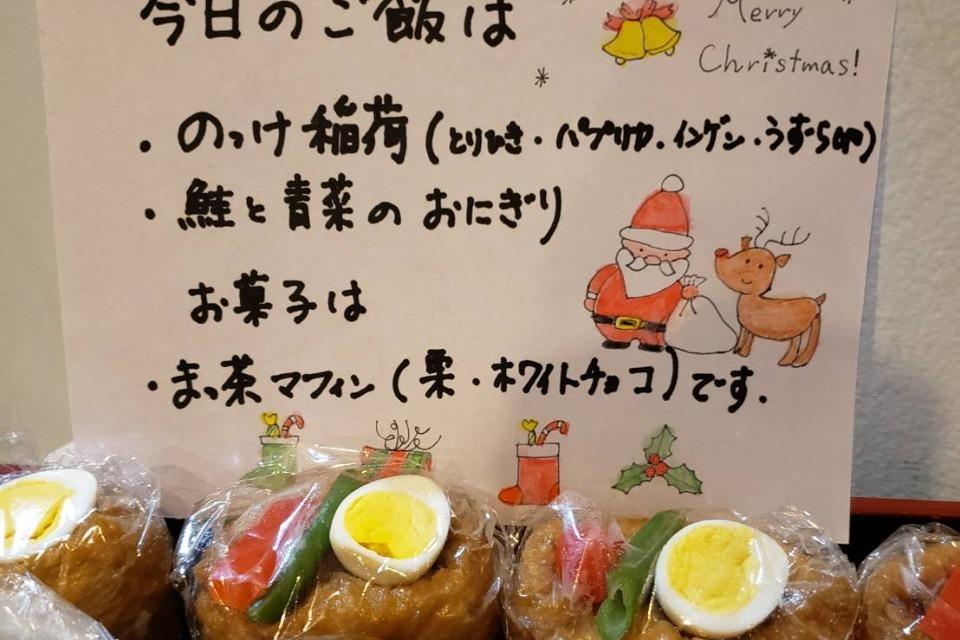 今日のご飯は
Merry
Christmas!
・のっけ稲荷(とりひき・パプリカ・インゲン・うずら卵)
・鮭と青菜のおにぎり
お菓子は
・まっ茶マフィン(栗・ホワイトチョコ)です.